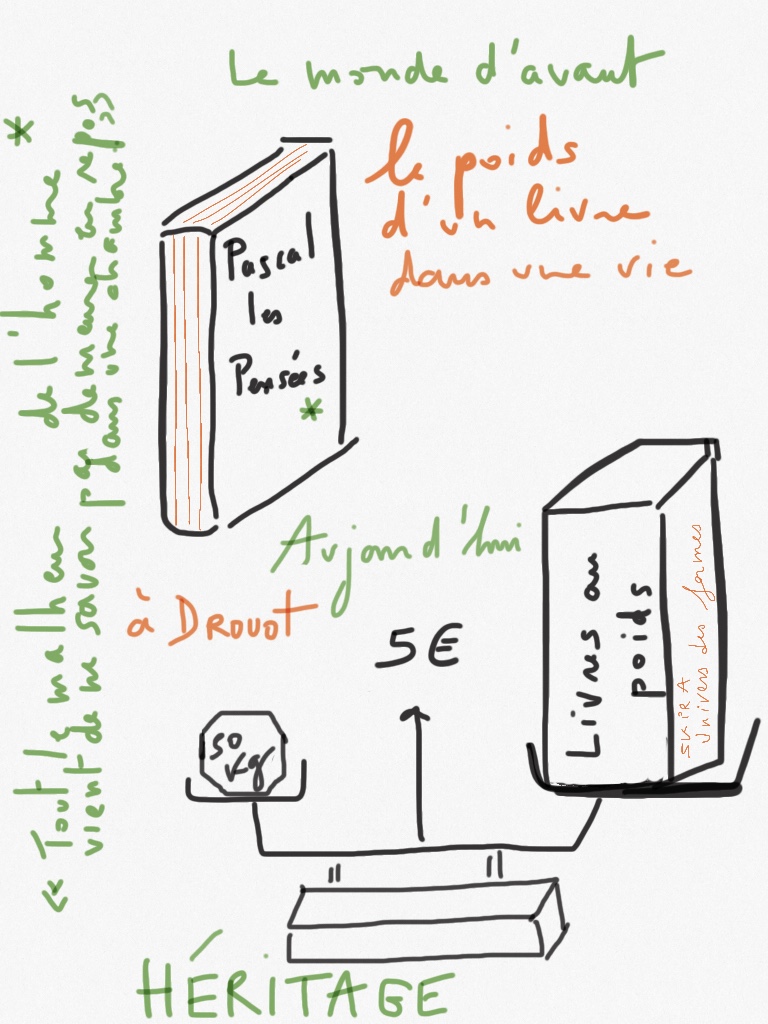 Le monde d'avant
le poids
d'un livre
dans une vie
Pascal
les
Pensées
*
« Tout le malheur de l'homme *
vient de ne savoir pas demeurer en repos
dans une chambre »
Aujourd'hui
à DROUOT
5 €
50
kg
Livres au
poids
SKIRA
Univers des formes
HÉRITAGE